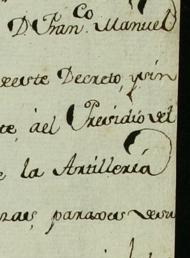 D. Fran.co Manuel
este Decreto, y sin
te, àel Presidio del
e la Artilleria
zas, para